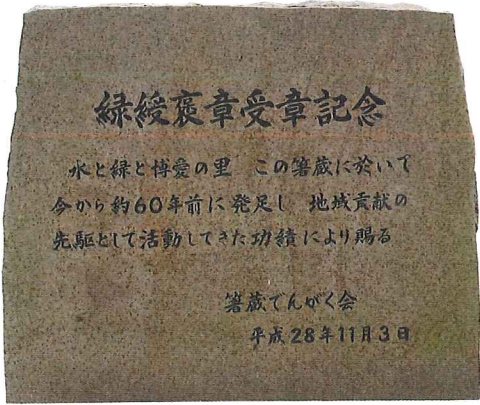 緑綬褒章受章記念
水と緑と博愛の里　この箸蔵に於いて
今から約60年前に発足し　地域貢献の
先駆として活動してきた功績により賜る
箸蔵でんがく会
平成28年11月3日